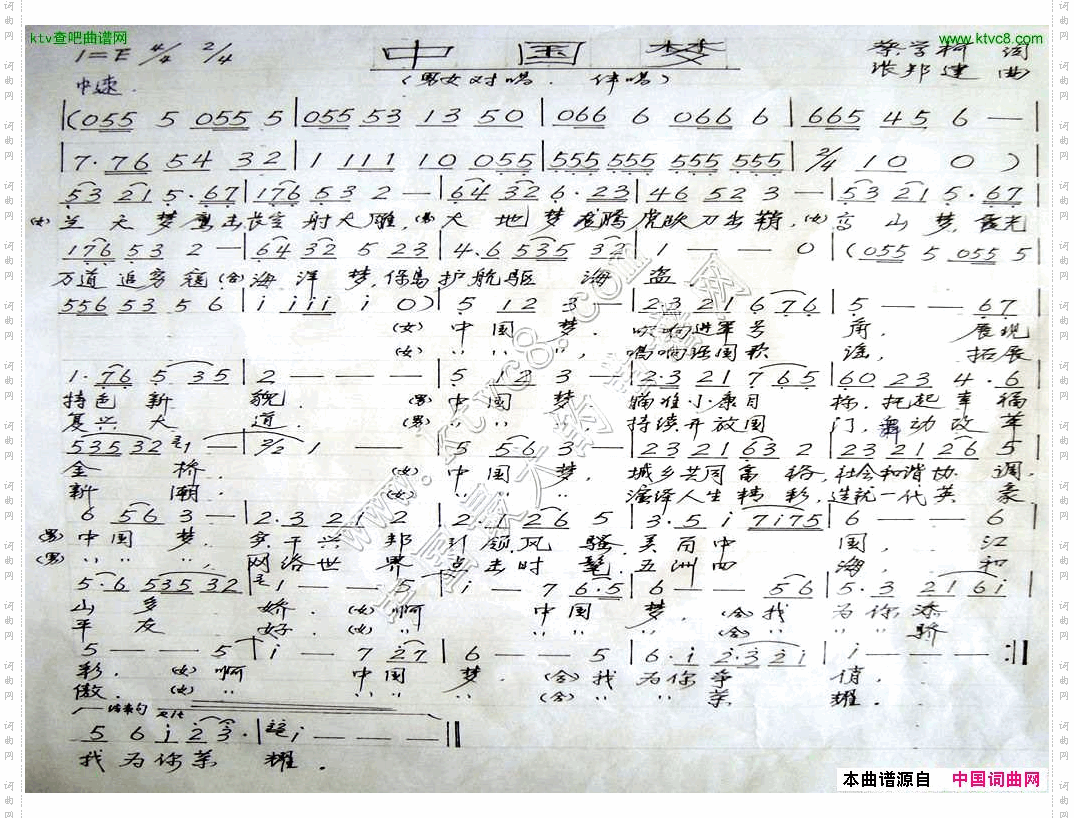 ktv查吧曲谱网
www.ktvc8.com
1=E 4/4 2/4
中国梦
蔡学柯 词
张邦建 曲
中速
(男女对唱. 伴唱)
|(055 5 055 5|055 53 13 50|066 6 066 6|665 45 6 —|
|7·76 54 32|1 111 10 055|555 555 555 555|2/4 10 0)
53 21 5·67|176 53 2 —|64 32 6·23|46 52 3 —|53 21 5·67
(女) 兰天梦,鹰击长空射大雕,(男)大地梦,龙腾虎跃刀出鞘,(女)高山梦,霞光
176 53 2 —|64 32 5 23|4·6 535 32|1 — — 0|(055 5 055 5
万道追穷寇(合)海洋梦,保岛护航驱海盗.
556 53 5 6|i iii i 0)|5 12 3 —|2·3 21 6 76|5 — — 67
(女)中国梦.吹响进军号角,展现
(女)〃〃〃,唱响强国歌谣,拓展
1·76 5 35|2 — — —|5 12 3 —|2·3 21 7 65|60 23 4·6
特色新貌.(男)中国梦瞄准小康目标,托起幸福
复兴大道.(男)〃〃〃持续开放国门,舞动改革
535 32 1 —|2/2 1 — —|5 56 3 —|23 21 63 2|23 21 26 5
金桥.(女)中国梦,城乡共同富裕,社会和谐协调.
新潮.(女)〃〃〃演绎人生精彩,造就一代英豪
6 56 3 —|2·3 21 2|2·1 26 5|3·5 i 7175|6 — — 6
(男)中国梦.实干兴邦引领风骚.美丽中国,江
(男)〃〃〃,网络世界点击时髦.五洲四海,和
5·6 535 32|1 — — 5|i — 7 6·5|6 — — 56|5·3 21 6i
山多娇.(女)啊中国梦,(合)我为你添
平友好.(女)〃〃〃〃(合)〃〃〃骄
5 — — 5|i — 7 27|6 — — 5|6·i 2·3 2i|i — — —:||
彩.(女)啊中国梦.(合)我为你争俏.
傲.(女)〃〃〃〃(合)〃〃〃荣耀.
结束句
5 6 i 23·|i — — —||
我为你荣耀.
www.ktvc8.com
本曲谱源自 中国词曲网
词曲网